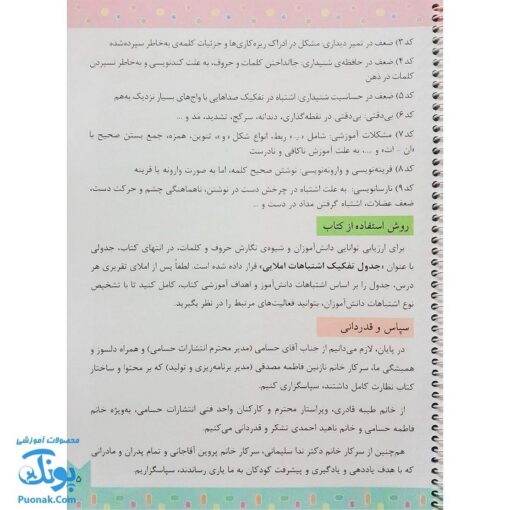 کد ۳) ضعف در تمیز دیداری: مشکل در ادراک ریزه‌کاری‌ها و جزئیات کلمه‌ی به‌خاطر سپرده‌شده
کد ۴) ضعف در حافظه‌ی شنیداری: جاانداختن کلمات و حروف، به علت کندنویسی و به‌خاطر نسپردن
کلمات در ذهن
کد ۵) ضعف در حساسیت شنیداری: اشتباه در تفکیک صداهایی با واج‌های بسیار نزدیک به‌هم
کد ۶) بی‌دقتی: بی‌دقتی در نقطه‌گذاری، دندانه، سرکج، تشدید، مد و ...
کد ۷) مشکلات آموزشی: شامل ربط، انواع شکل «و»، تنوین، همزه، جمع بستن صحیح با
«ان - ات» و ...، به علت آموزش ناکافی و نادرست
کد ۸) قرینه‌نویسی و وارونه‌نویسی: نوشتن صحیح کلمه، اما به صورت وارونه یا قرینه
کد ۹) نارسانویسی: به علت اشتباه در چرخش دست در نوشتن، ناهماهنگی چشم و حرکت دست،
ضعف عضلات، اشتباه گرفتن مداد در دست و ...
روش استفاده از کتاب
برای ارزیابی توانایی دانش‌آموزان و شیوه‌ی نگارش حروف و کلمات، در انتهای کتاب، جدولی
با عنوان «جدول تفکیک اشتباهات املایی» قرار داده شده است. لطفاً پس از املای تقریری هر
درس، جدول را بر اساس اشتباهات دانش‌آموز و اهداف آموزشی کتاب، کامل کنید تا با تشخیص
نوع اشتباهات دانش‌آموزان، بتوانید فعالیت‌های مرتبط را در نظر بگیرید.
سپاس و قدردانی
در پایان، لازم می‌دانیم از جناب آقای حسامی (مدیر محترم انتشارات حسامی) و همراه دلسوز و
همیشگی ما، سرکار خانم نازنین فاطمه مصدقی (مدیر برنامه‌ریزی و تولید) که بر محتوا و ساختار
کتاب نظارت کامل داشتند، سپاسگزاری کنیم.
از خانم طیبه قادری، ویراستار محترم و کارکنان واحد فنی انتشارات حسامی، به‌ویژه خانم
فاطمه حسامی و خانم ناهید احمدی تشکر و قدردانی می‌کنیم.
هم‌چنین از سرکار خانم دکتر ندا سلیمانی، سرکار خانم پروین آقاجانی و تمام پدران و مادرانی
که با هدف یاددهی و یادگیری و پیشرفت کودکان به ما یاری رساندند، سپاسگزاریم.
۵
محصولات آموزشی
پونک
Puonak.Com